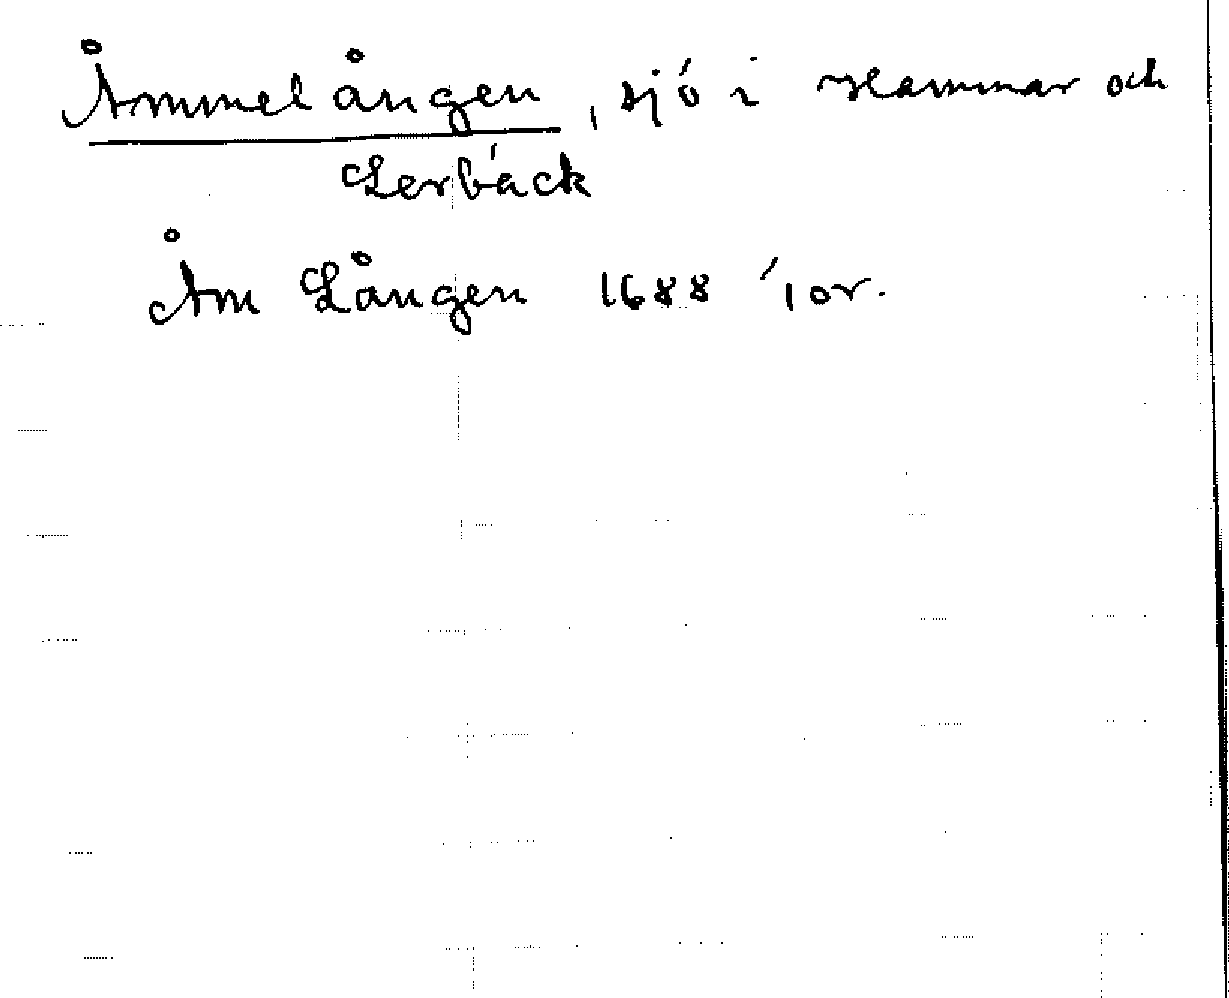 Åmmelången, sjö i Hammar och
Lerbäck
Åm Lången 1688 'jor.